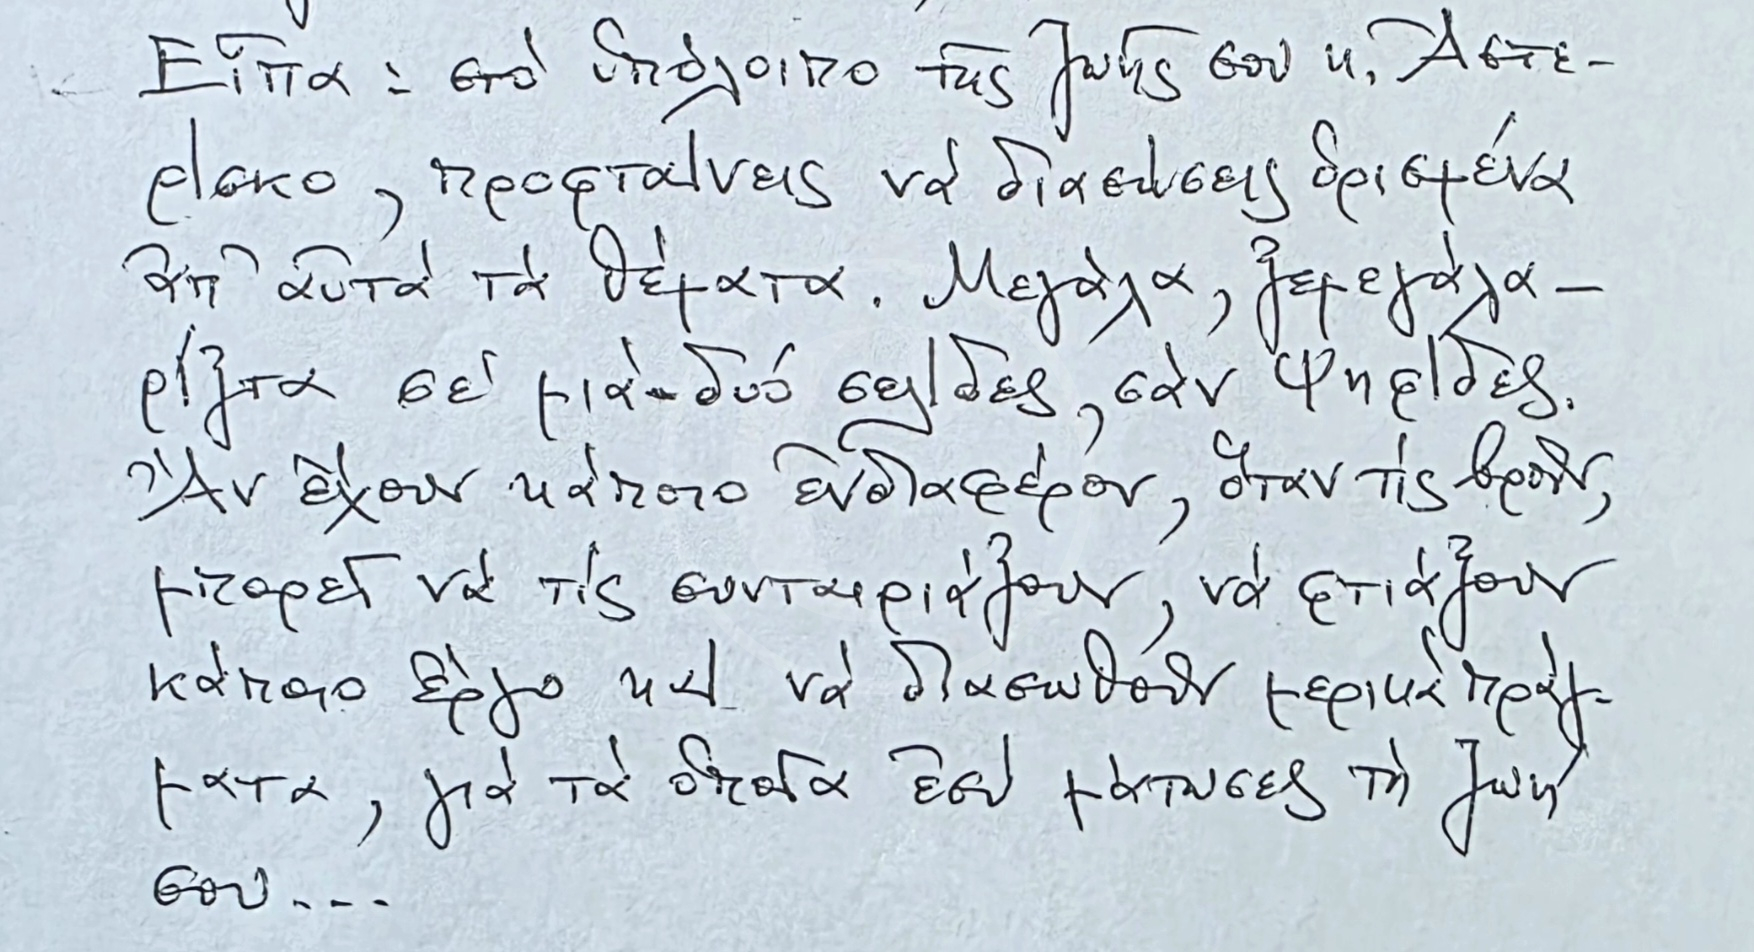 Εἶπα: στό ὑπόλοιπο τῆς ζωῆς σου κ. Ἀστε-
ρίσκο, προφταίνεις νά διασώσεις ὁρισμένα
ἀπ' αὐτά τά θέματα. Μεγάλα, ξεμεγάλα-
ρίζτα σέ μιά-δυό σελίδες, σάν ψηφίδες.
Ἄν ἔχουν κάποιο ἐνδιαφέρον, ὅταν τίς βροῦν,
μπορεῖ νά τίς συνταιριάξουν, νά φτιάξουν
κάποιο ἔργο καί νά διασωθοῦν μερικά πράγ-
ματα, γιά τά ὁποῖα ἐσύ μάτωσες τή ζωή
σου....